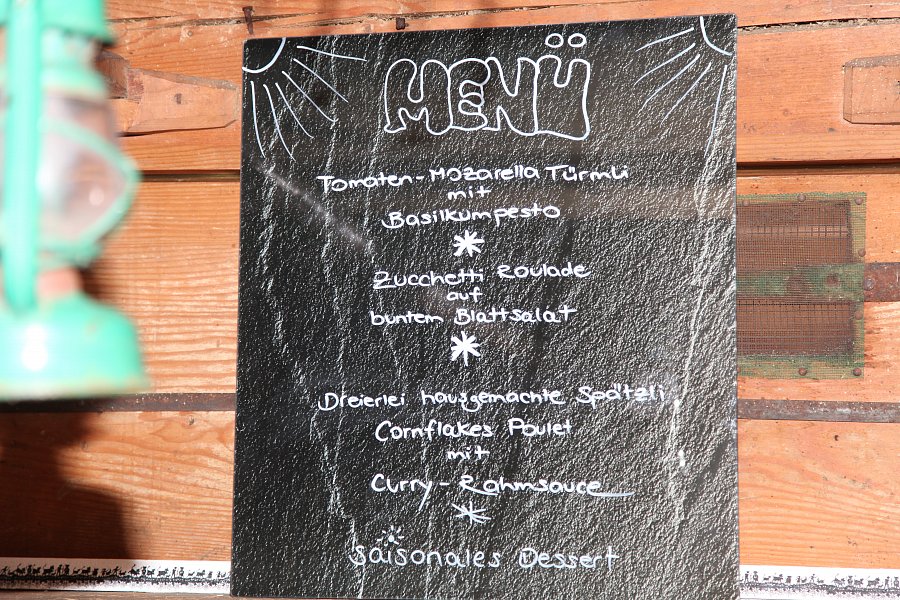 MENÜ
Tomaten-Mozarella Türmli
mit
Basilkumpesto
Zucchetti Roulade
auf
buntem Blattsalat
Dreierlei hausgemachte Spätzli
Cornflakes Poulet
mit
Curry-Rahmsauce
säisonales Dessert